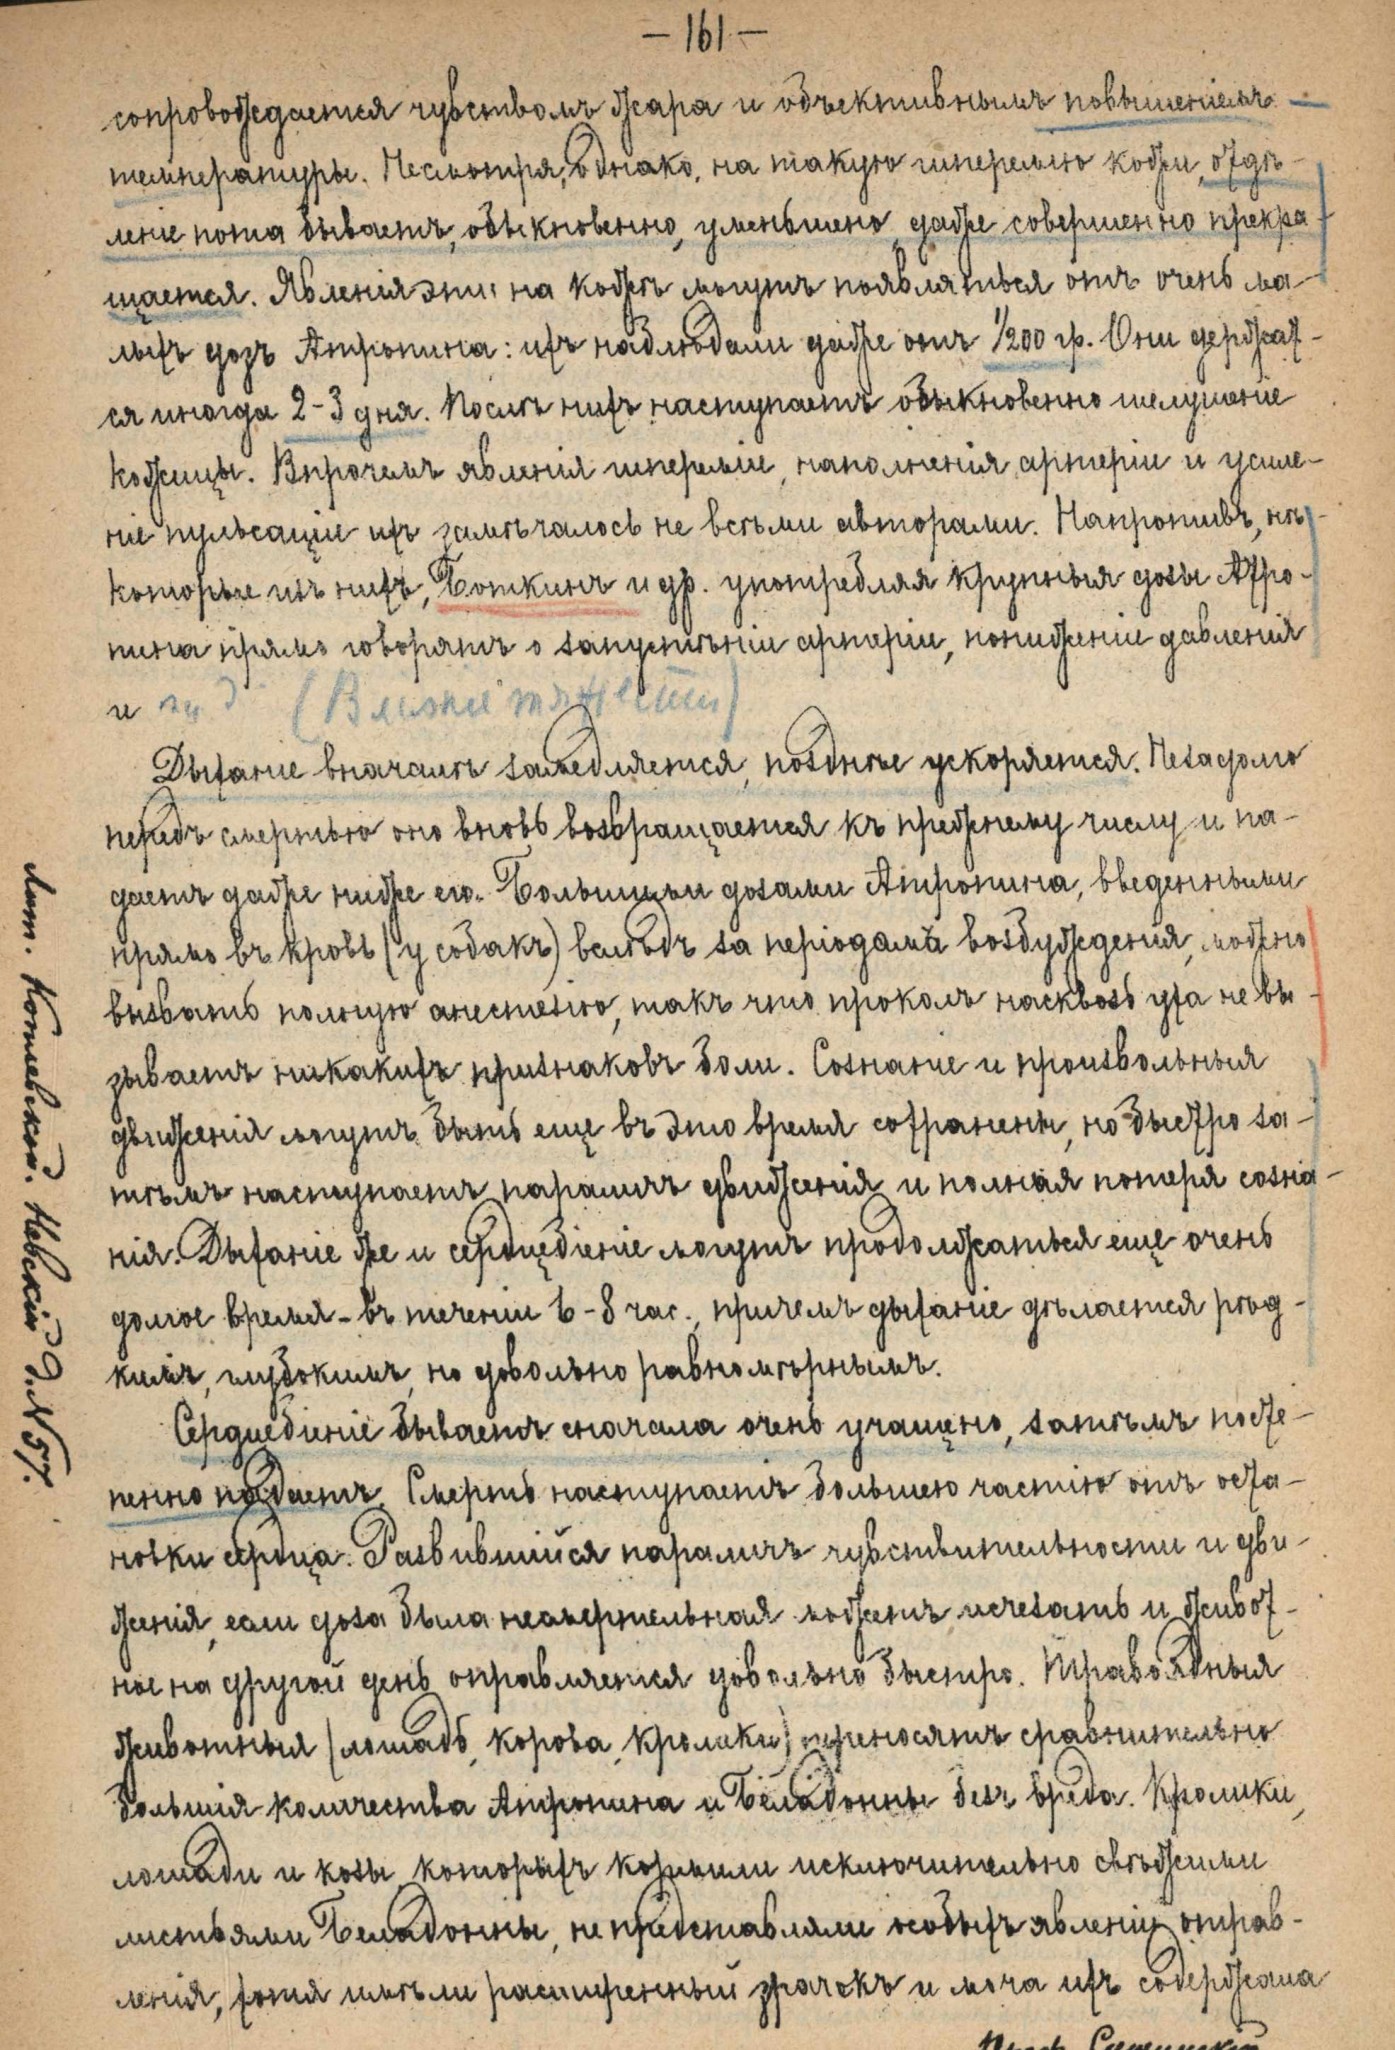 — 161 —
сопровождается чувствомъ жара и объективнымъ повышеніемъ
температуры. Несмотря, однако, на такую гиперемію кожи, отдѣ-
леніе пота бываетъ, обыкновенно, уменьшено, даже совершенно прекра-
щается. Явленія эти на кожѣ могутъ появляться отъ очень ма-
лыхъ дозъ Атропина: ихъ наблюдали даже отъ 1/200 гр. Они держат-
ся иногда 2-3 дня. Послѣ нихъ наступаетъ обыкновенно шелушеніе
кожицы. Впрочемъ явленія гипереміи, наполненія артеріи и усиле-
ніе пульсаціи ихъ замѣчалось не всѣми авторами. Напротивъ, нѣ-
которые изъ нихъ, Боткинъ и др. употребляя крупныя дозы Атро-
пина прямо говорятъ о запустѣніи артеріи, пониженіе давленія
и
Дыханіе вначалѣ замедляется, позднѣе ускоряется. Незадолго
передъ смертью оно вновь возвращается къ прежнему числу и па-
даетъ даже ниже его. Большими дозами Атропина, введенными
прямо въ кровь (у собакъ) вслѣдъ за періодомъ возбужденія, можно
вызвать полную анестезію, такъ что проколъ насквозь уха не вы-
зываетъ никакихъ признаковъ боли. Сознаніе и произвольныя
движенія могутъ быть еще въ это время сохранены, но быстро за-
тѣмъ наступаетъ параличъ движенія и полная потеря созна-
нія. Дыханіе же и сердцебіеніе могутъ продолжаться еще очень
долгое время - въ теченіи 6-8 час., причемъ дыханіе дѣлается рѣд-
кимъ, глубокимъ, но довольно равномѣрнымъ.
Сердцебіеніе бываетъ сначала очень учащено, затѣмъ посте-
пенно падаетъ. Смерть наступаетъ большею частію отъ оста-
новки сердца. Развившійся параличъ чувствительности и дви-
женія, если доза была несмертельная можетъ исчезать и живот-
ное на другой день оправляется довольно быстро. Травоядныя
животныя (лошадь, корова, кролики) переносятъ сравнительно
большія количества Атропина и Беладонны безъ вреда. Кролики,
лошади и козы, которыхъ кормили исключительно свѣжими
листьями Беладонны, не представляли особыхъ явленій отрав-
ленія, хотя имѣли расширенный зрачокъ и моча ихъ содержала
Лит. Котельской. Невскій д. N 57.